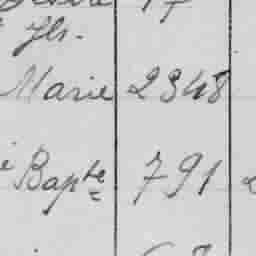 fls.
Marie 2348
Bapte 791